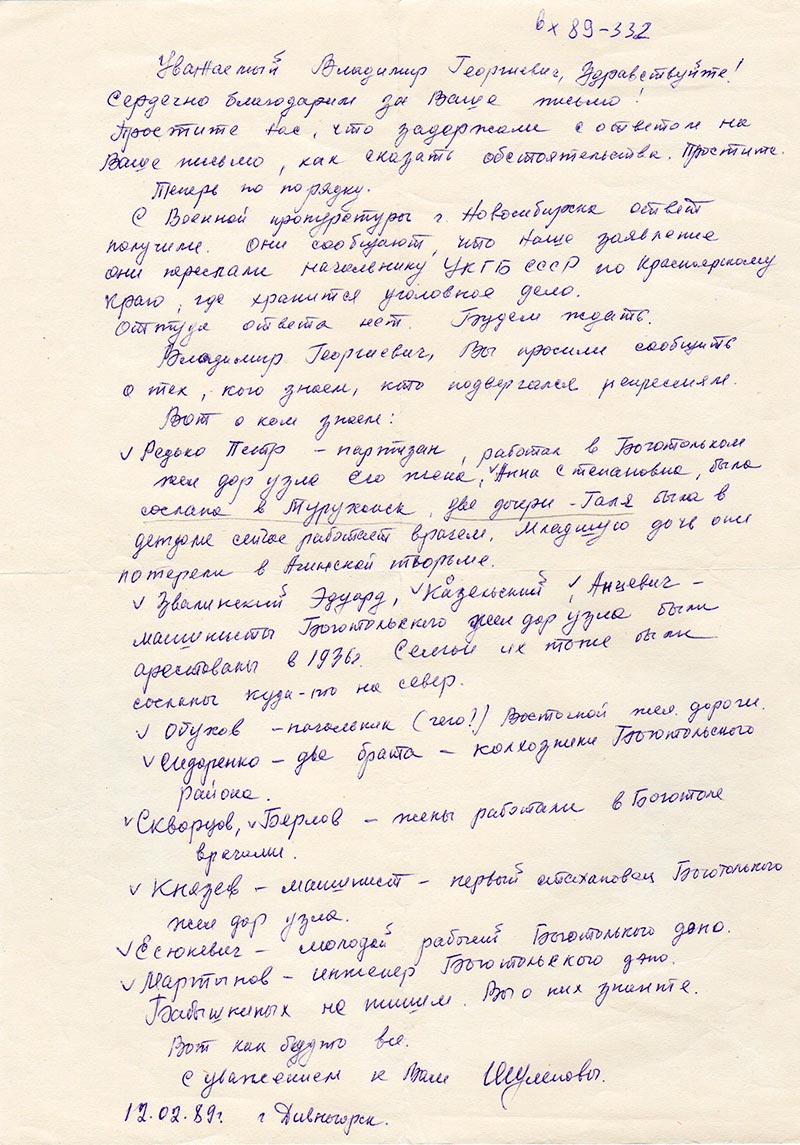 вх 89-332
Уважаемый Владимир Георгиевич, Здравствуйте!
Сердечно благодарим за Ваше письмо!
Простите нас, что задержали с ответом на
Ваше письмо, как сказать обстоятельства. Простите.
Теперь по порядку.
С Военной прокуратуры г. Новосибирска ответ
получили. Они сообщают, что наше заявление
они переслали начальнику УКГБ СССР по Красноярскому
краю, где хранится уголовное дело.
Оттуда ответа нет. Будем ждать.
Владимир Георгиевич, Вы просили сообщить
о тех, кого знаем, кто подвергался репрессиям.
Вот о ком знаем:
√ Редько Петр – партизан, работал в Боготольком
жел дор узла Его жена, √Анна Степановна, была
сослана в Туруханск, две дочери - Галя была в
детдоме сейчас работает врачем, младшую дочь они
потеряли в Ачинской тюрьме.
√ Звалинский Эдуард, √Казельский, √ Анцевич –
машинисты Боготольского жел дор узла были
арестованы в 1936г. Семьи их тоже были
сосланы куда-то на север.
√ Обухов – начальник (чего?) Восточной жел. дороги.
√ Сидоренко – два брата – колхозники Боготольского
района.
√Скворцов, √Берлов – жены работали в Боготоле
врачами.
√ Князев – машинист – первый стахановец Боготольского
жел дор узла.
√Есюкевич – молодой рабочий Боготолького депо.
√Мартынов – инженер Боготольского депо.
Бабышкиных не пишем. Вы о них знаете.
Вот как будто все.
С уважением к Вам Шулеповы.
12.02.89г. г Дивногорск.